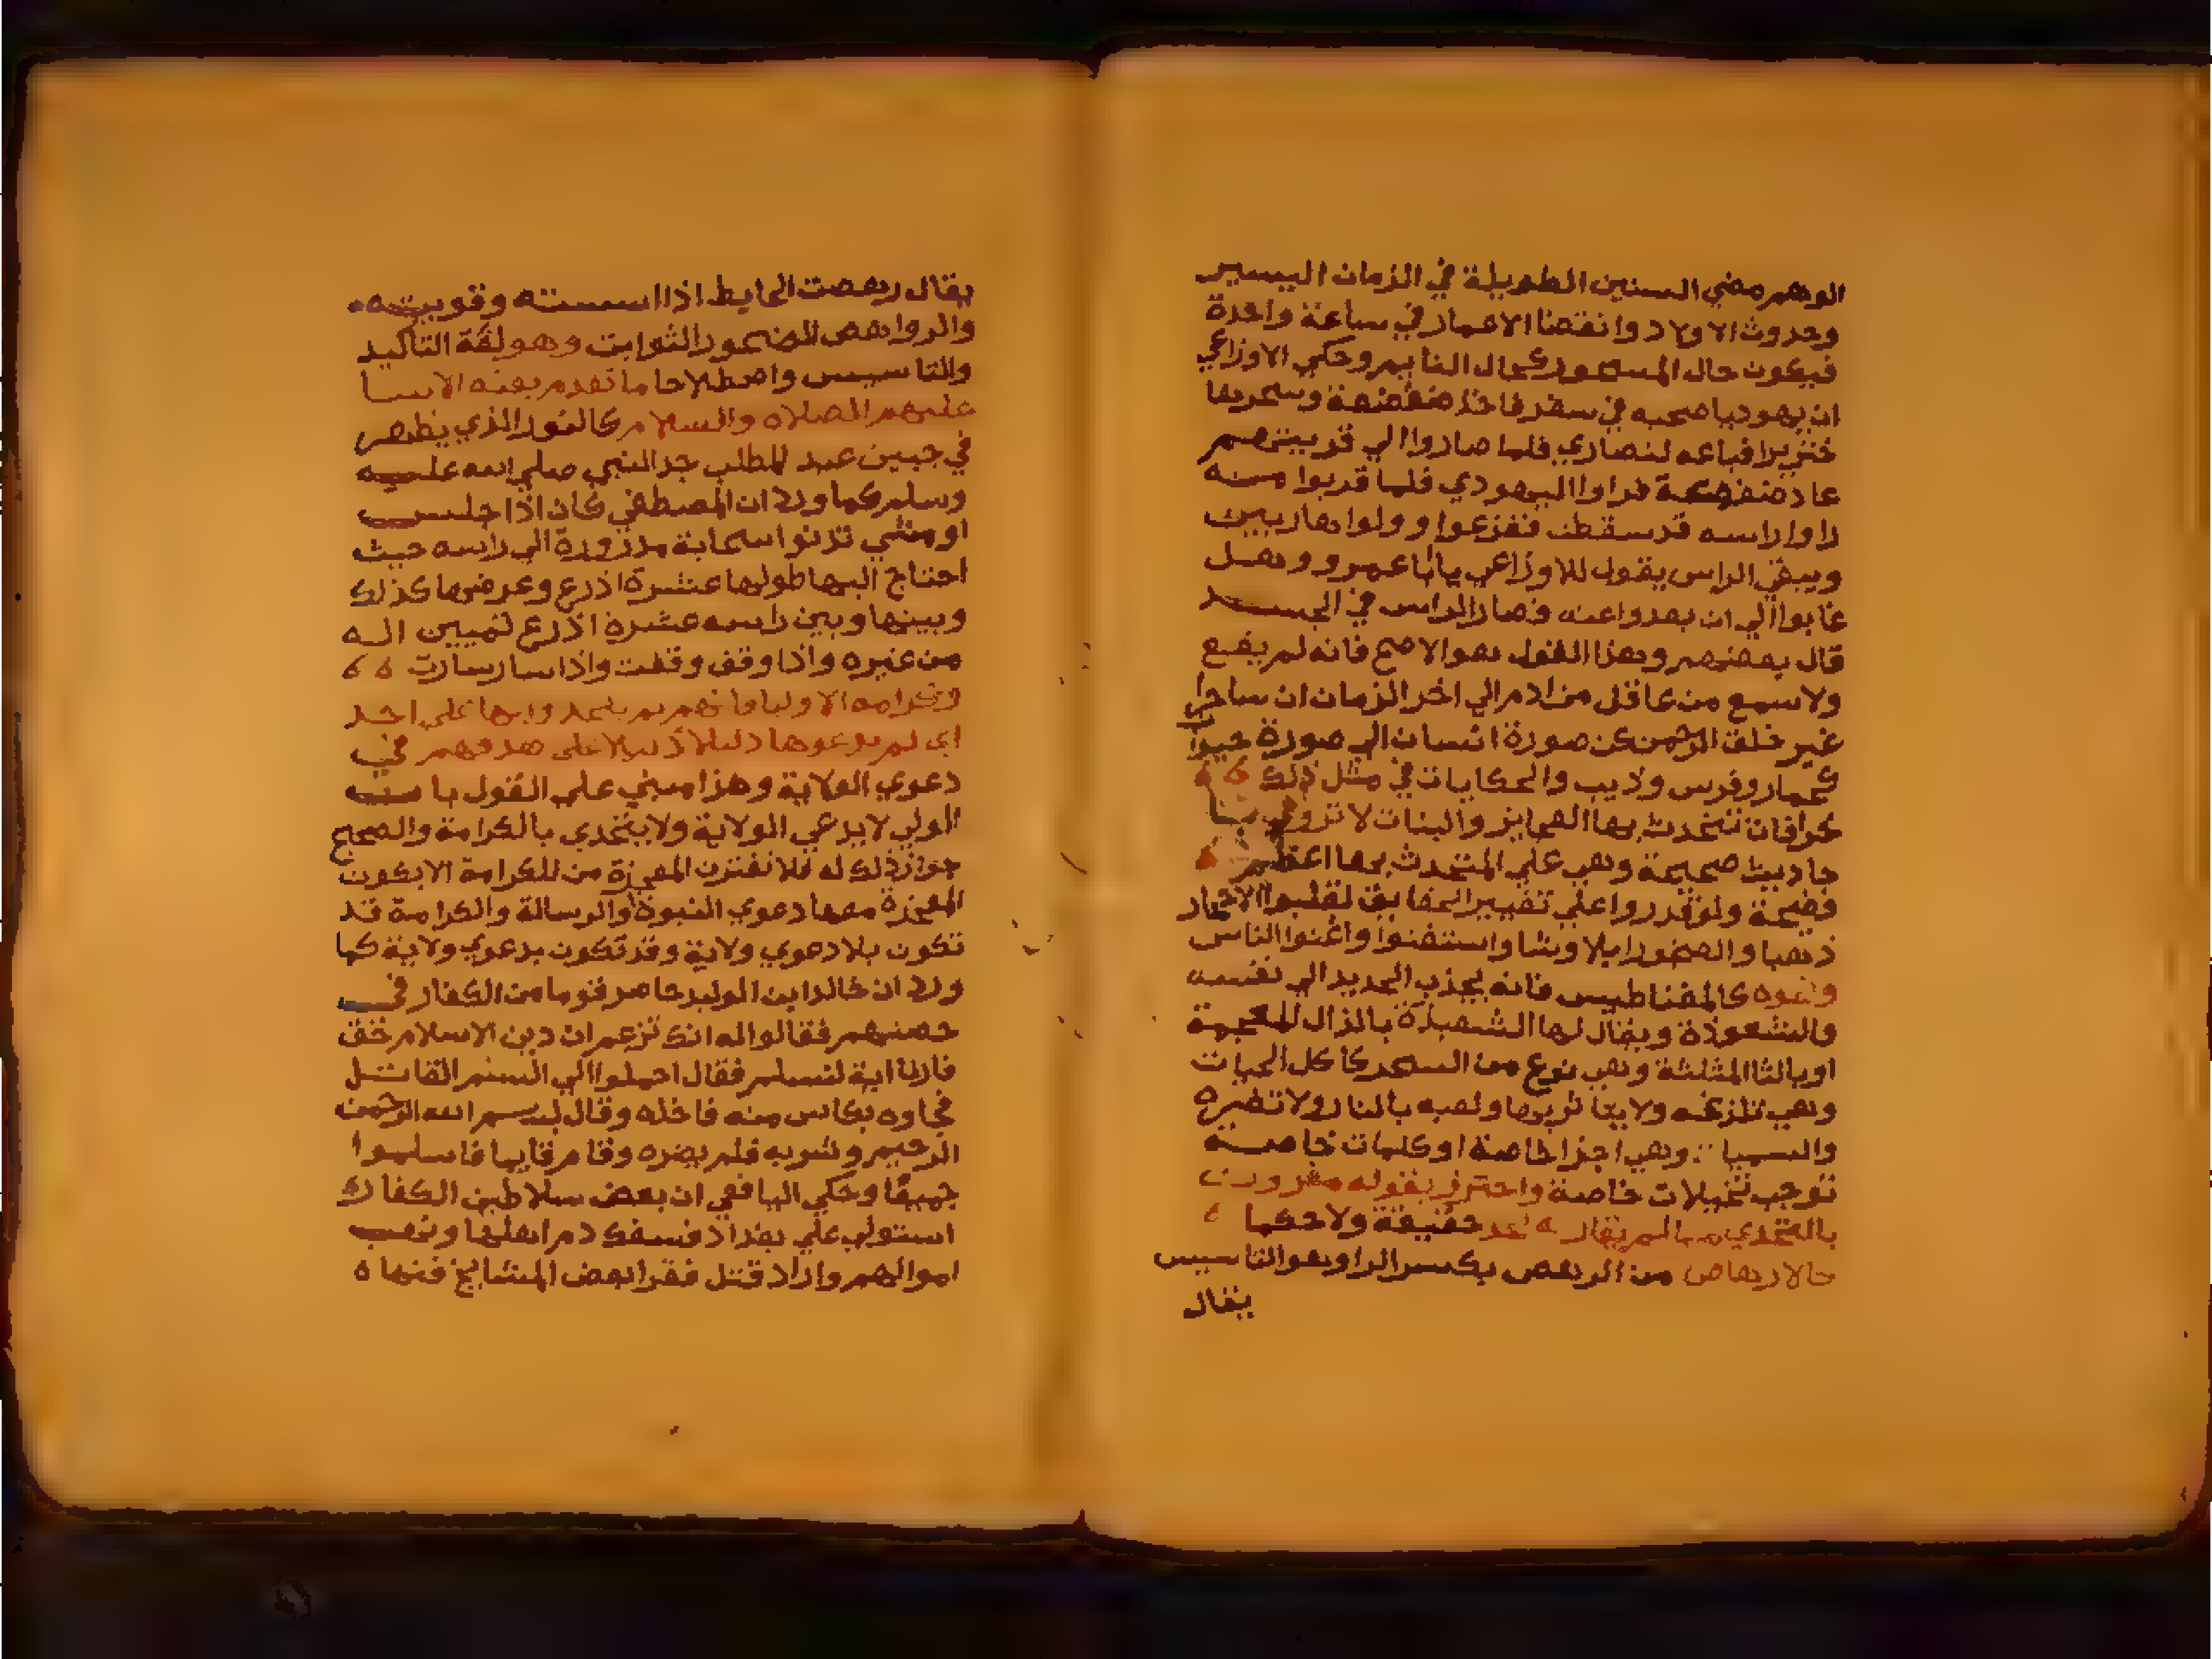 الوهم مضي السنين الطويلة في الزمان اليسير
وحدوث الاولاد وانقضا الاعمار في ساعة واحدة
فيكون حال المسحور كحال النايم وحكي الاوزاعي
ان يهوديا صحبه في سفر فاخذ ضفضعة وسحرها
خنزيرا فباعه لنصاري فلما صاروا الي قريتهم
عاد ضفضعة فراوا اليهودي فلما قربوا منه
راوا راسه قد سقطت ففزعوا وولوا هاربين
وبقي الراس يقول للاوزاعي يا ابا عمرو وهل
غابوا الي ان بعدوا عنه فصار الراس في الجسد
قال بعضهم وهذا القول هو الاصح فانه لم يقع
ولا سمع من عاقل من ادم الي اخر الزمان ان ساحرا
غير خلق الرحمن من صورة انسان الي صورة حيوان
كحمار وفرس وذيب والحكايات في مثل ذلك
خرافات تتحدث بها العجايز والبنات لا تروي
حاديث صحيحة وهي علي المتحدث بها اعظم
فضيحة ولو قدروا علي تغيير الحقايق لقلبوا الاحجار
ذهبا والصخور ابلا وشا واستغنوا واغنوا الناس
ونحوه كالمغناطيس فانه يجذب الحديد الي نفسه
والشعوذة ويقال لها الشعبذة بالذال المعجمة
او بالثا المثلثة وهي نوع من السحر كاكل الحيات
وهي تلدغه ولا يتاثر بها ولعبه بالنار ولا تضره
والسيميا وهي اجزا خاصة او كلمات خاصة
توجب تخيلات خاصة واحترز بقوله مقرونة
بالتحدي مما لم يقارنه تحد حقيقة ولا حكما
كالارهاص من الرهص بكسر الرا وهو التاسيس
يقال
يقال رهصت الحايط اذا اسسته وقويته
والرواهص الصخور الثوابت وهو لغة التاكيد
والتاسيس واصطلاحا ما تقدم بعثه الانبيا
عليهم الصلاه والسلام كالنور الذي يظهر
في جبين عبد المطلب جد النبي صلي الله عليه
وسلم كما ورد ان المصطفي كان اذا جلس
او مشي تدنوا سحابة مدورة الي راسه حيث
احتاج اليها طولها عشرة اذرع وعرضها كذلك
وبينها وبين راسه عشرة اذرع لتميين اله
من غيره واذا وقف وقفت واذا سار سارت
وكرامه الاوليا فانهم لم يتحدوا بها علي احد
اي لم يدعوها دليلا علي صدقهم في
دعوي الولاية وهذا مبني علي القول بان
الولي لا يدعي الولاية ولا يتحدي بالكرامة والصحيح
جواز ذلك له فلا تفترن المعجزة من الكرامة الا بكون
المعجزة معها دعوي النبوة والرسالة والكرامة قد
تكون بلا دعوي ولاية وقد تكون بدعوي ولاية كما
ورد ان خالد ابن الوليد حاصر قوما من الكفار في
حصنهم فقالوا له انك تزعم ان دين الاسلام حق
فارنا اية لنسلم فقال احملوا الي السم القاتل
فجاوه بكاس منه فاخذه وقال بسم الله الرحمن
الرحيم وشربه فلم يضره وقام قايما فاسلموا
جميعا وحكي اليافعي ان بعض سلاطين الكفار
استولي علي بغداد فسفك دم اهلها ونهب
اموالهم واراد قتل فقرا بعض المشايخ فنها ه